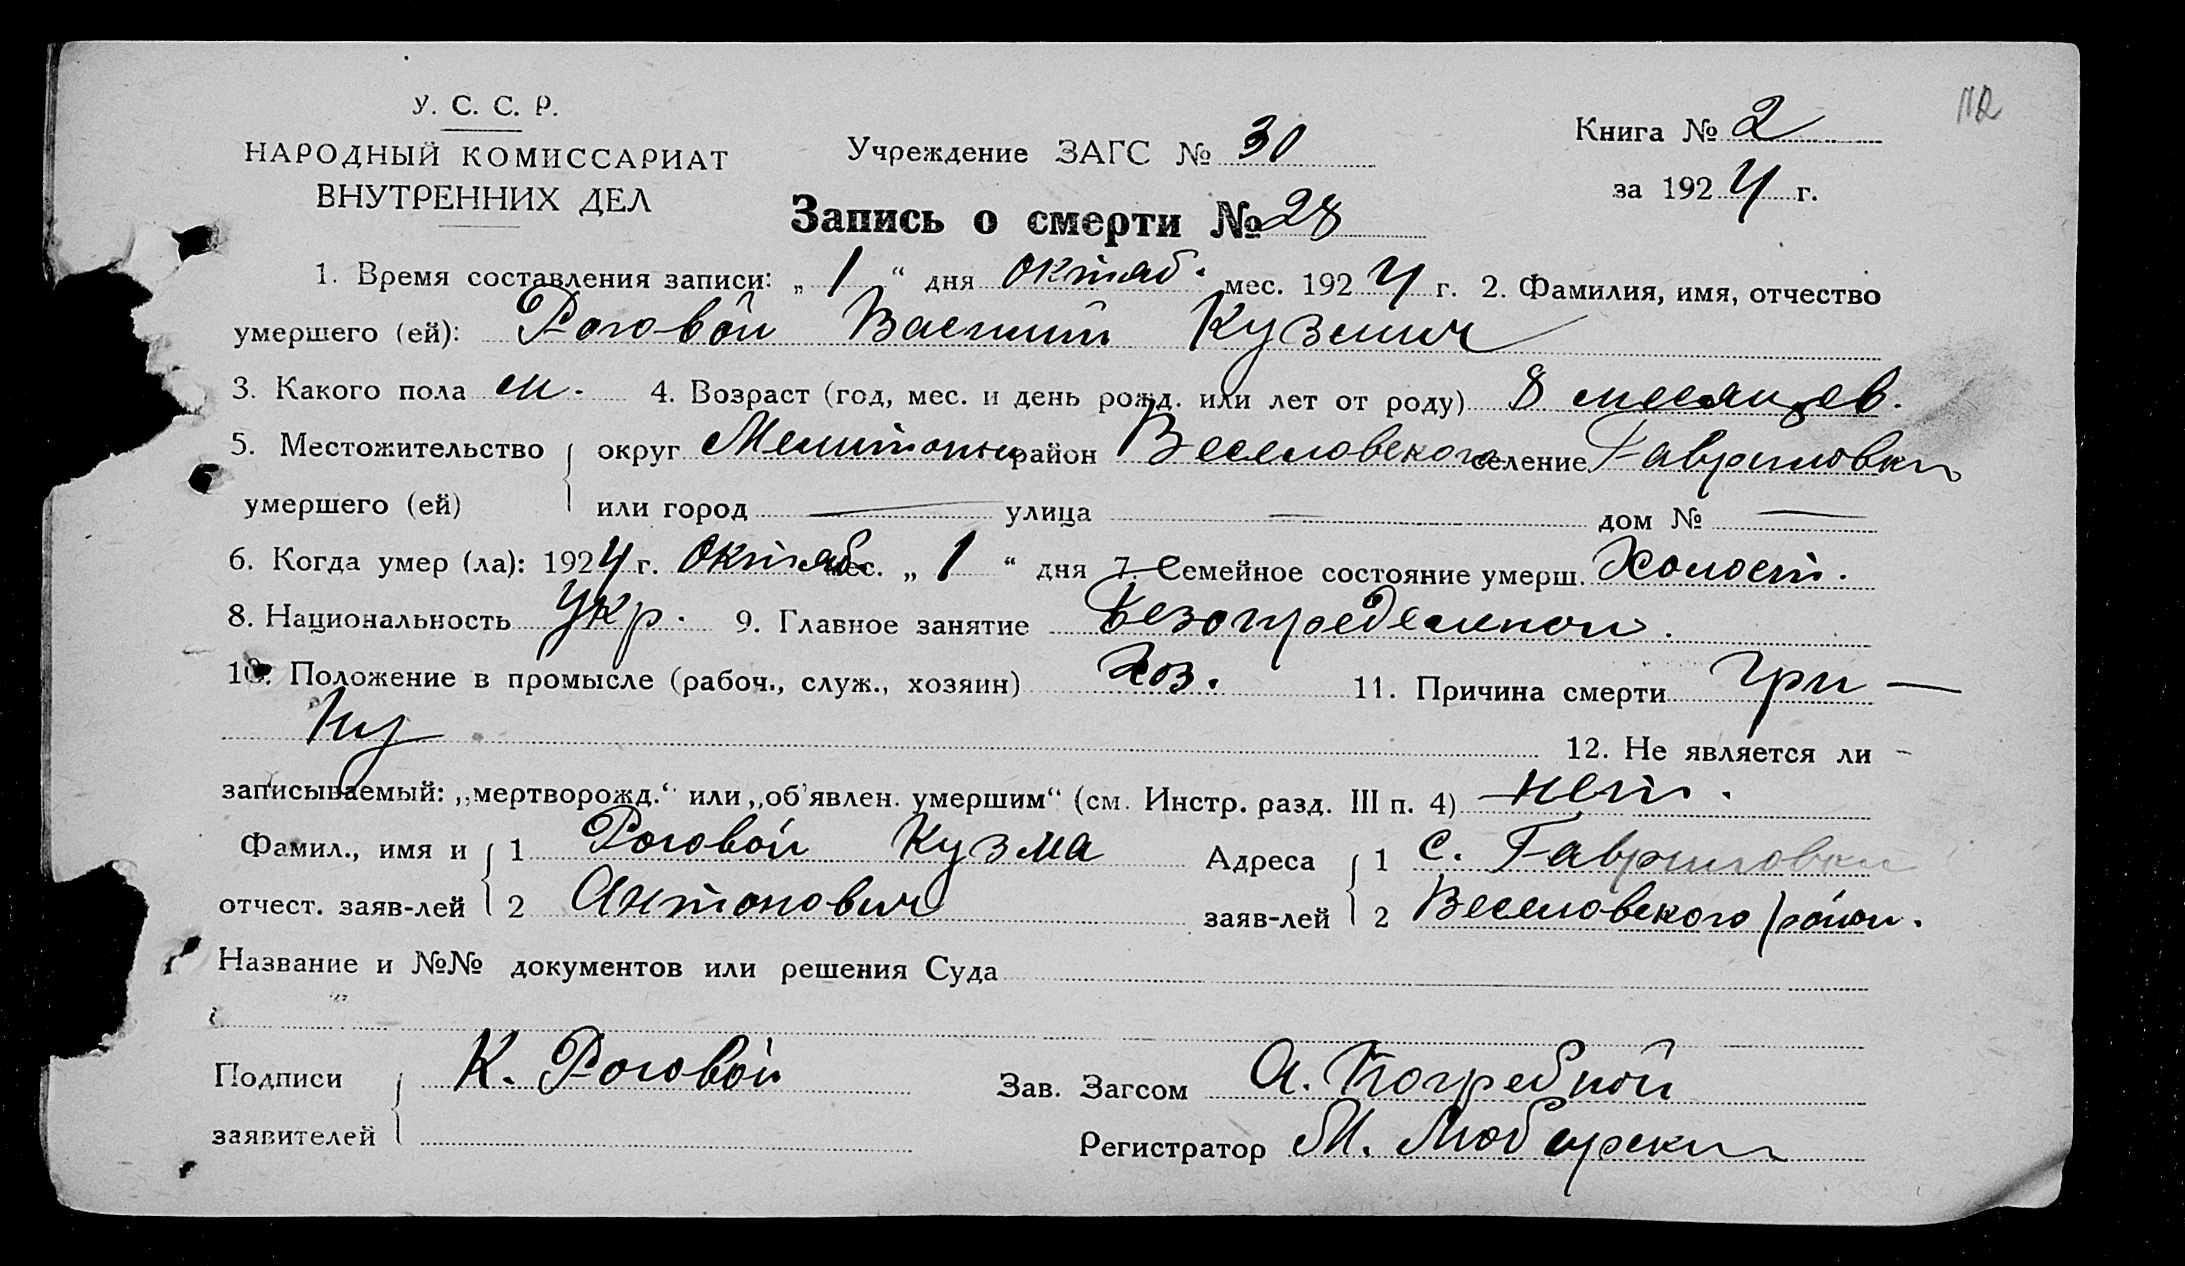 112
У. С. С. Р.
НАРОДНЫЙ КОМИССАРИАТ
ВНУТРЕННИХ ДЕЛ
Учреждение ЗАГС № 30
Книга № 2
за 1924 г.
Запись о смерти № 28
1. Время составления записи: „ 1 “ дня октяб. мес. 1924 г. 2. Фамилия, имя, отчество
умершего (ей): Роговой Василий Кузмич
3. Какого пола м. 4. Возраст (год, мес. и день рожд. или лет от роду) 8 месяцев.
5. Местожительство округ Мелитопол район Веселовского селение Гавриловки
умершего (ей) или город — улица — дом № —
6. Когда умер (ла): 1924 г. Октяб. мес. „ 1 “ дня 7. Семейное состояние умерш. Холост.
8. Национальность Укр. 9. Главное занятие Безопределенной.
10. Положение в промысле (рабоч., служ., хозяин) Хоз. 11. Причина смерти гри—
пу 12. Не является ли
записываемый: „мертворожд.“ или „об'явлен. умершим“ (см. Инстр. разд. III п. 4) нет.
Фамил., имя и 1 Роговой Кузма Адреса 1 С. Гавриловки
отчест. заяв-лей 2 Антонович заяв-лей 2 Веселовского район.
Название и №№ документов или решения Суда
Подписи К. Роговой Зав. Загсом А. Погребной
заявителей Регистратор М. Любарский